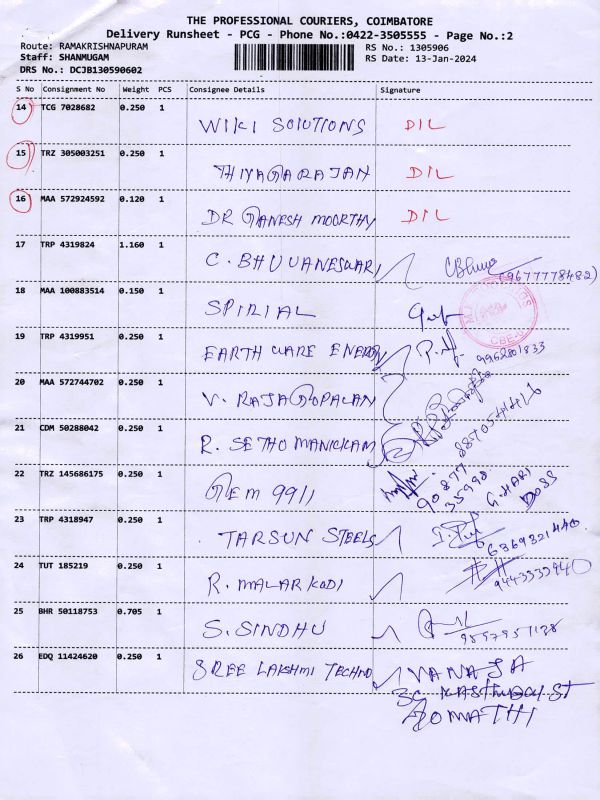 THE PROFESSIONAL COURIERS, COIMBATORE
Delivery Runsheet - PCG - Phone No.:0422-3505555 - Page No.:2
Route: RAMAKRISHNAPURAM
RS No.: 1305906
Staff: SHANMUGAM
RS Date: 13-Jan-2024
DRS No.: DCJB130590602
S No Consignment No Weight PCS Consignee Details Signature
14 TCG 7028682 0.250 1 WIKI SOLUTIONS DIL
15 TRZ 305003251 0.250 1 THIYAGARAJAN DIL
16 MAA 572924592 0.120 1 DR GANESH MOORTHY DIL
17 TRP 4319824 1.160 1 C. BHUVANESWARI 9677778482)
18 MAA 100883514 0.150 1 SPIRIAL
19 TRP 4319951 0.250 1 EARTH WARE ENERGY 9962801833
20 MAA 572744702 0.250 1 V. RAJAGOPALAN
21 CDM 50288042 0.250 1 R. SETHO MANICKAM
22 TRZ 145686175 0.250 1 GEM 9911 90877 35998 G.HARI DOSS
23 TRP 4318947 0.250 1 TARSUN STEELS
24 TUT 185219 0.250 1 R. MALAR KODI
25 BHR 50118753 0.705 1 S. SINDHU
26 EDQ 11424620 0.250 1 SREE LAKSHMI TECHNO VANAJA
GOMATHI